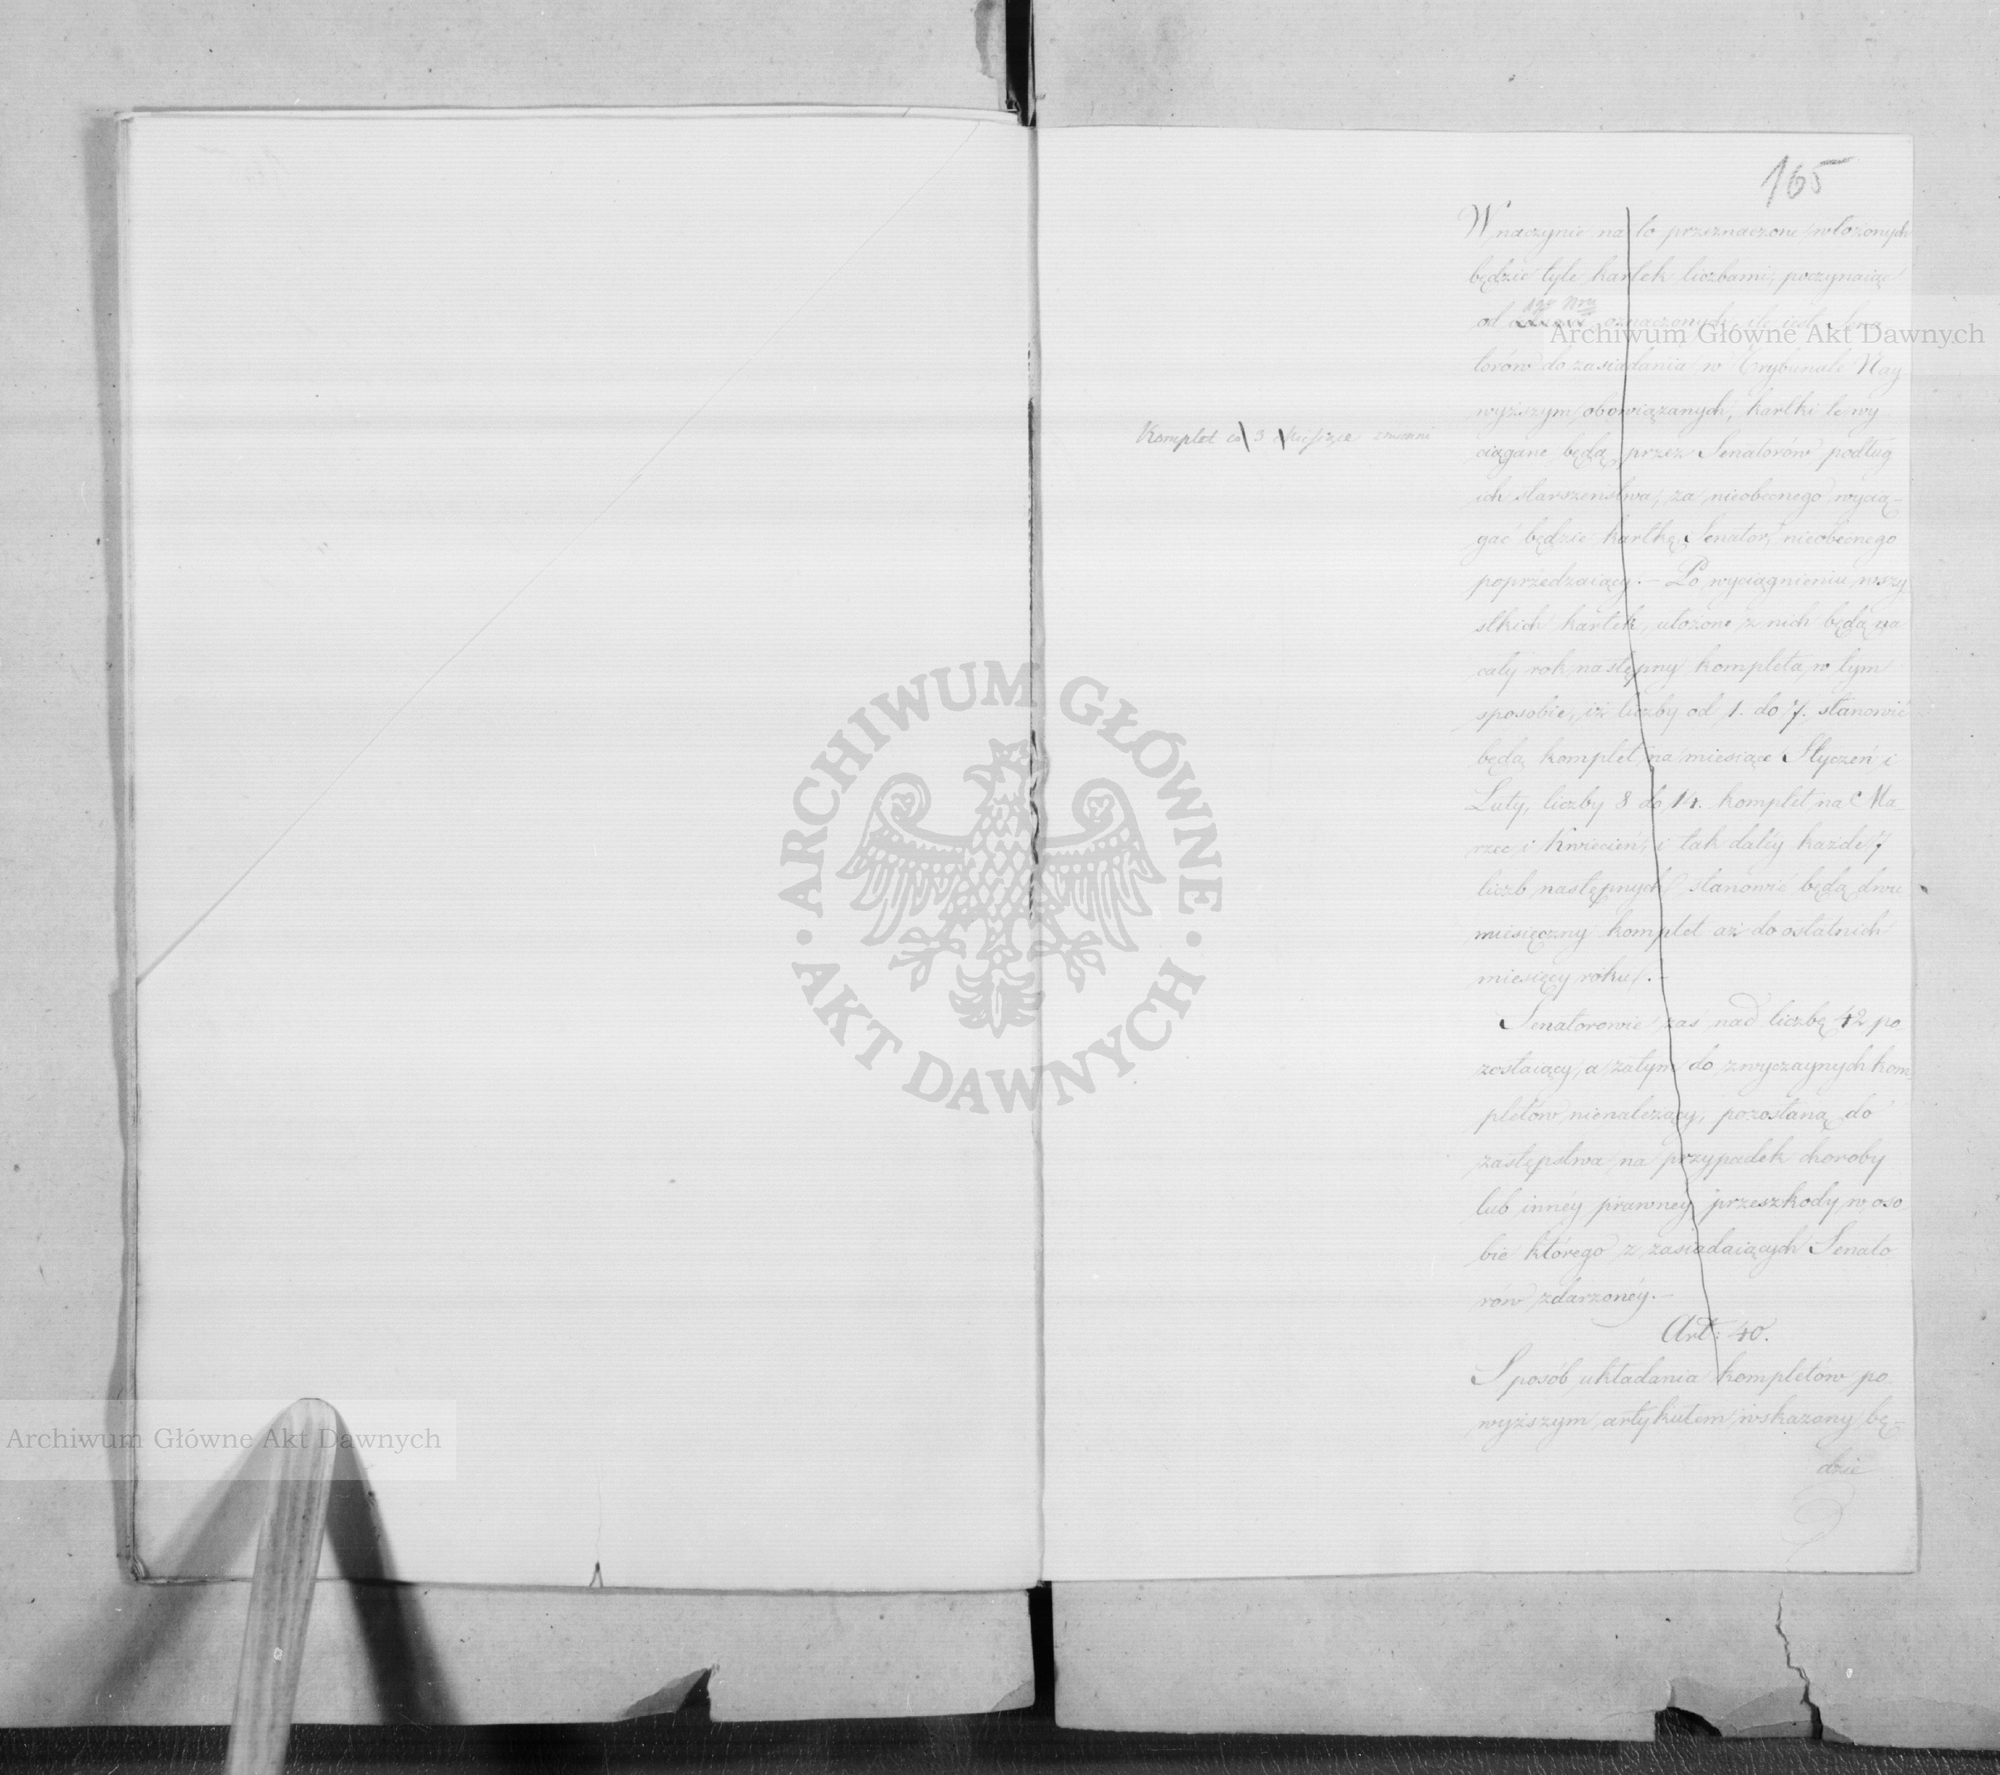 165
W naczynie na to przeznaczone włożonych
będzie tyle kartek liczbami, poczynaiąc
od 1go Nru oznaczonych, ile iest Sena
torów do zasiadania w Trybunale Nay
wyższym obowiązanych, kartki te wy
ciągane będą przez Senatorów podług
ich starszeństwa, za nieobecnego wycią-
gać będzie kartkę Senator, nieobecnego
poprzedzaiący. – Po wyciągnieniu wszy
stkich kartek, ułożone z nich będą na
cały rok następny kompleta, w tym
sposobie, iż liczby od 1. do 7. stanowić
będą komplet na miesiące Styczeń i
Luty, liczby 8 do 14. komplet na Ma-
rzec i Kwiecień, i tak daléy każde 7
liczb następnych stanowić będą dwu
miesięczny komplet aż do ostatnich
miesięcy roku. –
Senatorowie zaś nad liczbę 42 po
zostaiący, a zatym do zwyczaynych kom
pletów nienależący, pozostaną do
zastępstwa na przypadek choroby
lub innéy prawnéy przeszkody w oso
bie którego z zasiadaiących Senato
rów zdarzonéy. –
Art: 40.
Sposób układania kompletów po
wyższym artykułem wskazany bę-
dzie
Komplet co 3 Miesiące zmienni
Archiwum Główne Akt Dawnych
ARCHIWUM GŁÓWNE
AKT DAWNYCH
Archiwum Główne Akt Dawnych